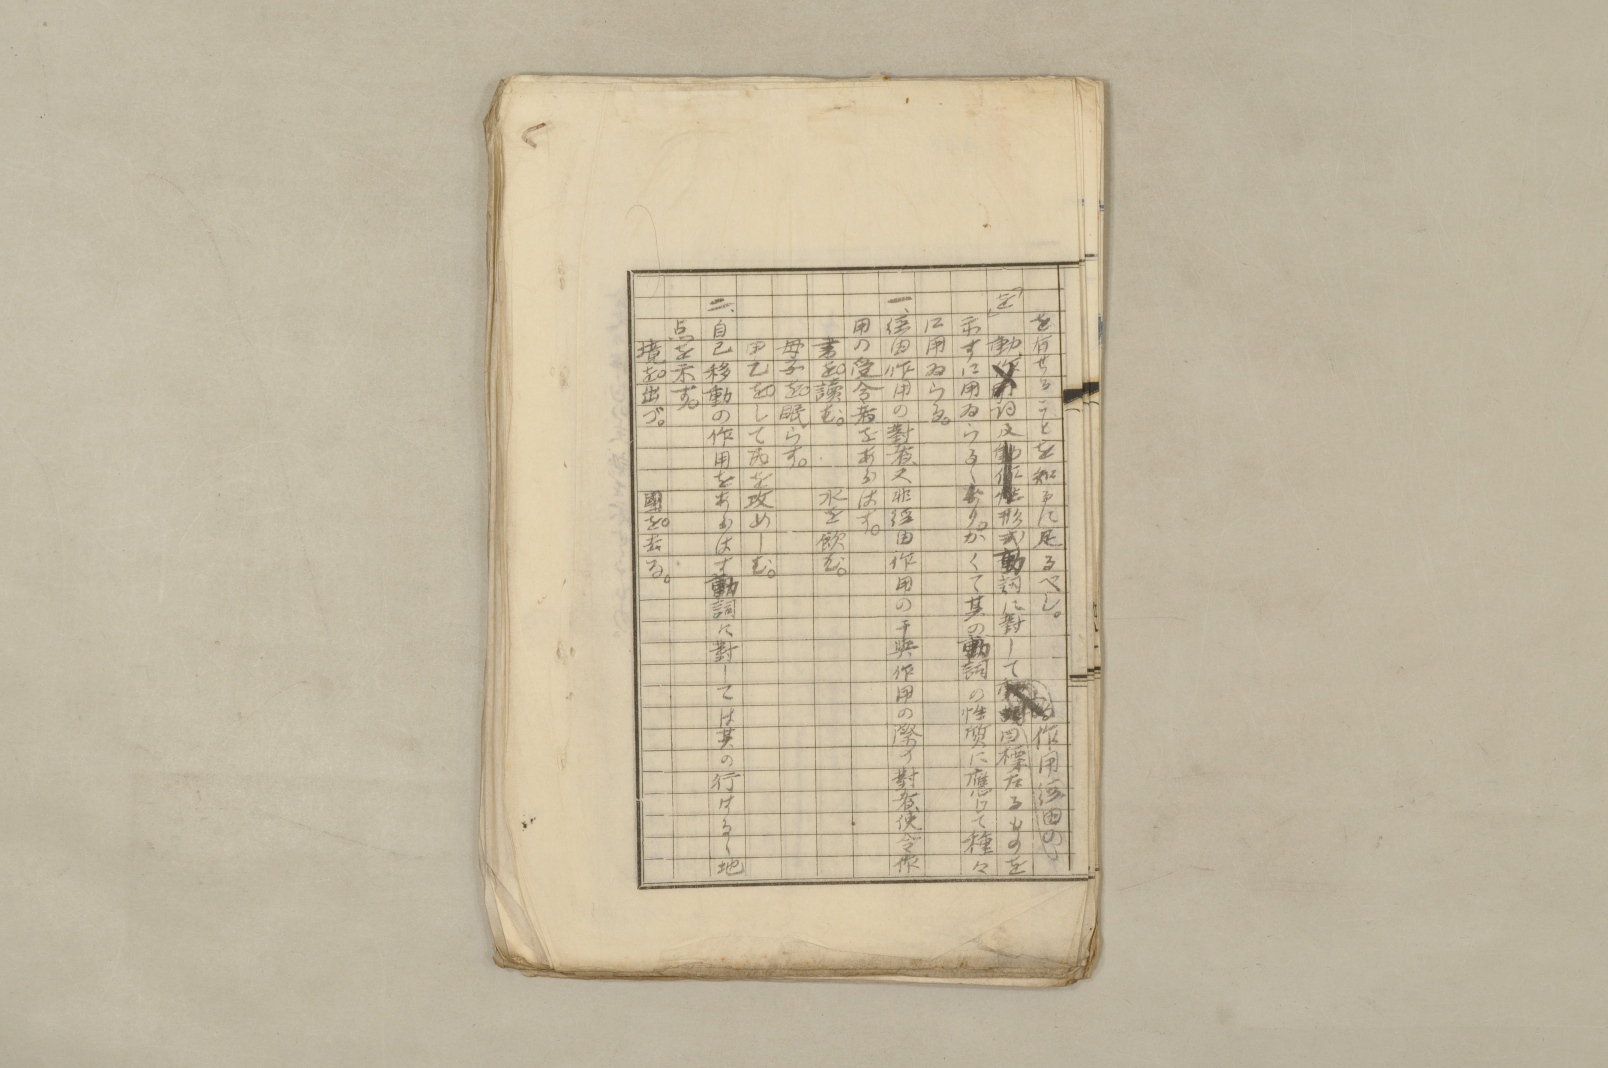 を有せることを知るに足るべし。
「を」 動作動詞及動作性形式動詞に對して目標たるものを
作用経由の
示すに用ゐらるゝなり。かくて其の動詞の性質に應じて種々
に用ゐらる。
一、経由作用の對者又非経由作用の干與作用の際の對者使令作
用の受令者をあらはす。
書を讀む。 水を飲む。
母子を眠らす。
甲乙をして丙を攻めしむ。
二、自己移動の作用をあらはす動詞に對しては其の行はるゝ地
点を示す。
境を出づ。 國を去る。